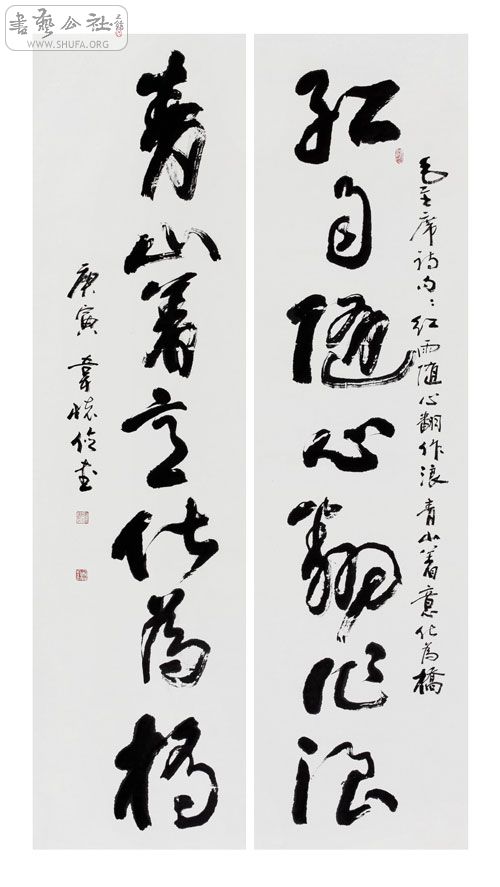 書藝公社
WWW.SHUFA.ORG
毛主席诗句：红雨随心翻作浪 青山着意化為橋
红雨随心翻作浪
青山着意化為橋
庚寅 韋